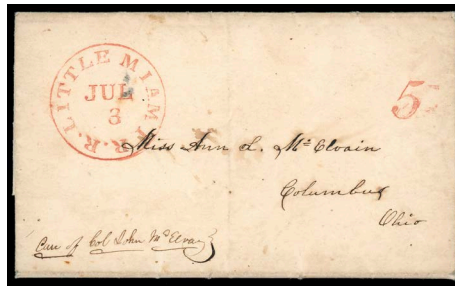 LITTLE MIAMI R.R.
JUL
3
5
Miss Ann L. McElvain
Columbus
Ohio
Care of Col John McElvain